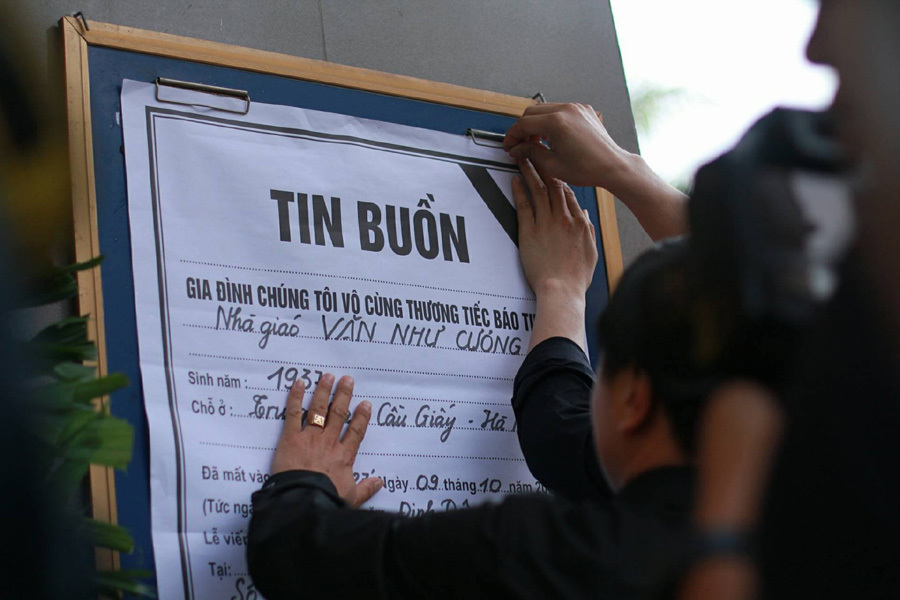 TIN BUỒN
GIA ĐÌNH CHÚNG TÔI VÔ CÙNG THƯƠNG TIẾC BÁO
Nhà giáo VĂN NHƯ CƯƠNG
Sinh năm : 1937
Chỗ ở : Cầu Giấy - Hà
Đã mất Ngày 09 tháng 10 năm
(Tức
Lễ
Tại: